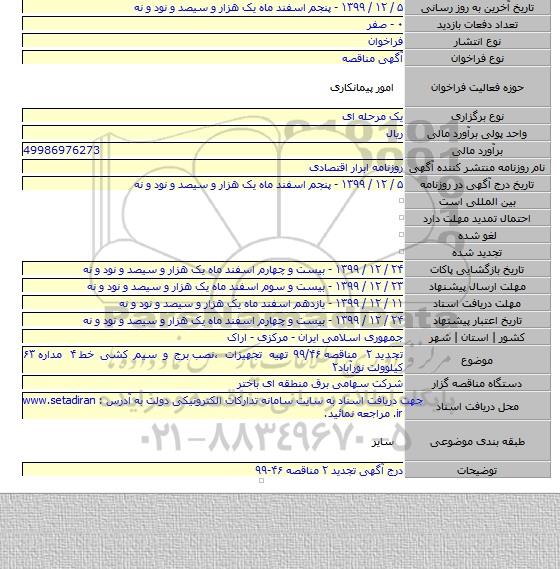 تاریخ آخرین به روز رسانی ۵ / ۱۲ / ۱۳۹۹ - پنجم اسفند ماه یک هزار و سیصد و نود و نه
تعداد دفعات بازدید ۰ - صفر
نوع انتشار فراخوان
نوع فراخوان آگهی مناقصه
حوزه فعالیت فراخوان امور پیمانکاری
نوع برگزاری یک مرحله ای
واحد پولی برآورد مالی ریال
برآورد مالی 49986976273
نام روزنامه منتشر کننده آگهی روزنامه ابرار اقتصادی
تاریخ درج آگهی در روزنامه ۵ / ۱۲ / ۱۳۹۹ - پنجم اسفند ماه یک هزار و سیصد و نود و نه
بین المللی است
احتمال تمدید مهلت دارد
لغو شده
تجدید شده
تاریخ بازگشایی پاکات ۲۴ / ۱۲ / ۱۳۹۹ - بیست و چهارم اسفند ماه یک هزار و سیصد و نود و نه
مهلت ارسال پیشنهاد ۲۳ / ۱۲ / ۱۳۹۹ - بیست و سوم اسفند ماه یک هزار و سیصد و نود و نه
مهلت دریافت اسناد ۱۱ / ۱۲ / ۱۳۹۹ - یازدهم اسفند ماه یک هزار و سیصد و نود و نه
تاریخ اعتبار پیشنهاد ۲۴ / ۱۲ / ۱۳۹۹ - بیست و چهارم اسفند ماه یک هزار و سیصد و نود و نه
کشور | استان | شهر جمهوری اسلامی ایران - مرکزی - اراک
موضوع تجدید ۲ مناقصه ۹۹/۴۶ تهیه تجهیزات ،نصب برج و سیم کشی خط ۴ مداره ۶۳
کیلوولت نورآباد۲
دستگاه مناقصه گزار شرکت سهامی برق منطقه ای باختر
محل دریافت اسناد جهت دریافت اسناد به سایت سامانه تدارکات الکترونیکی دولت به آدرس : www.setadiran
.ir مراجعه نمائید.
طبقه بندی موضوعی سایر
توضیحات درج آگهی تجدید ۲ مناقصه ۴۶-۹۹
۰۲۱-۸۸۳۴۹۶۷۰-۵